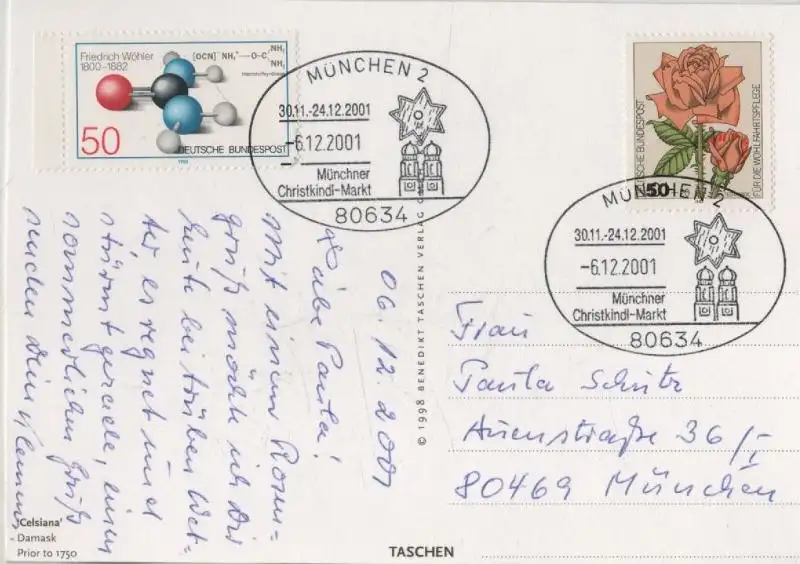 Friedrich Wöhler
1800–1882
[OCN]⁻ NH₄⁺ — O=C
NH₂
NH₂
50
DEUTSCHE BUNDESPOST
1982
MÜNCHEN 2
30.11.-24.12.2001
-6.12.2001
Münchner
Christkindl-Markt
80634
DEUTSCHE BUNDESPOST
FÜR DIE WOHLFAHRTSPFLEGE
50
MÜNCHEN 2
30.11.-24.12.2001
-6.12.2001
Münchner
Christkindl-Markt
80634
06.12.2001
Liebe Paula!
Mit einem Rosen-
gruß möchte ich Dir
heute bei trüben Wet-
ter, es regnet und
stürmt gerade, einen
sommerlichen Gruß
senden Dein Klemens
© 1998 BENEDIKT TASCHEN VERLAG
Frau
Paula Schütz
Auenstraße 36/I
80469 München
'Celsiana'
– Damask
Prior to 1750
TASCHEN